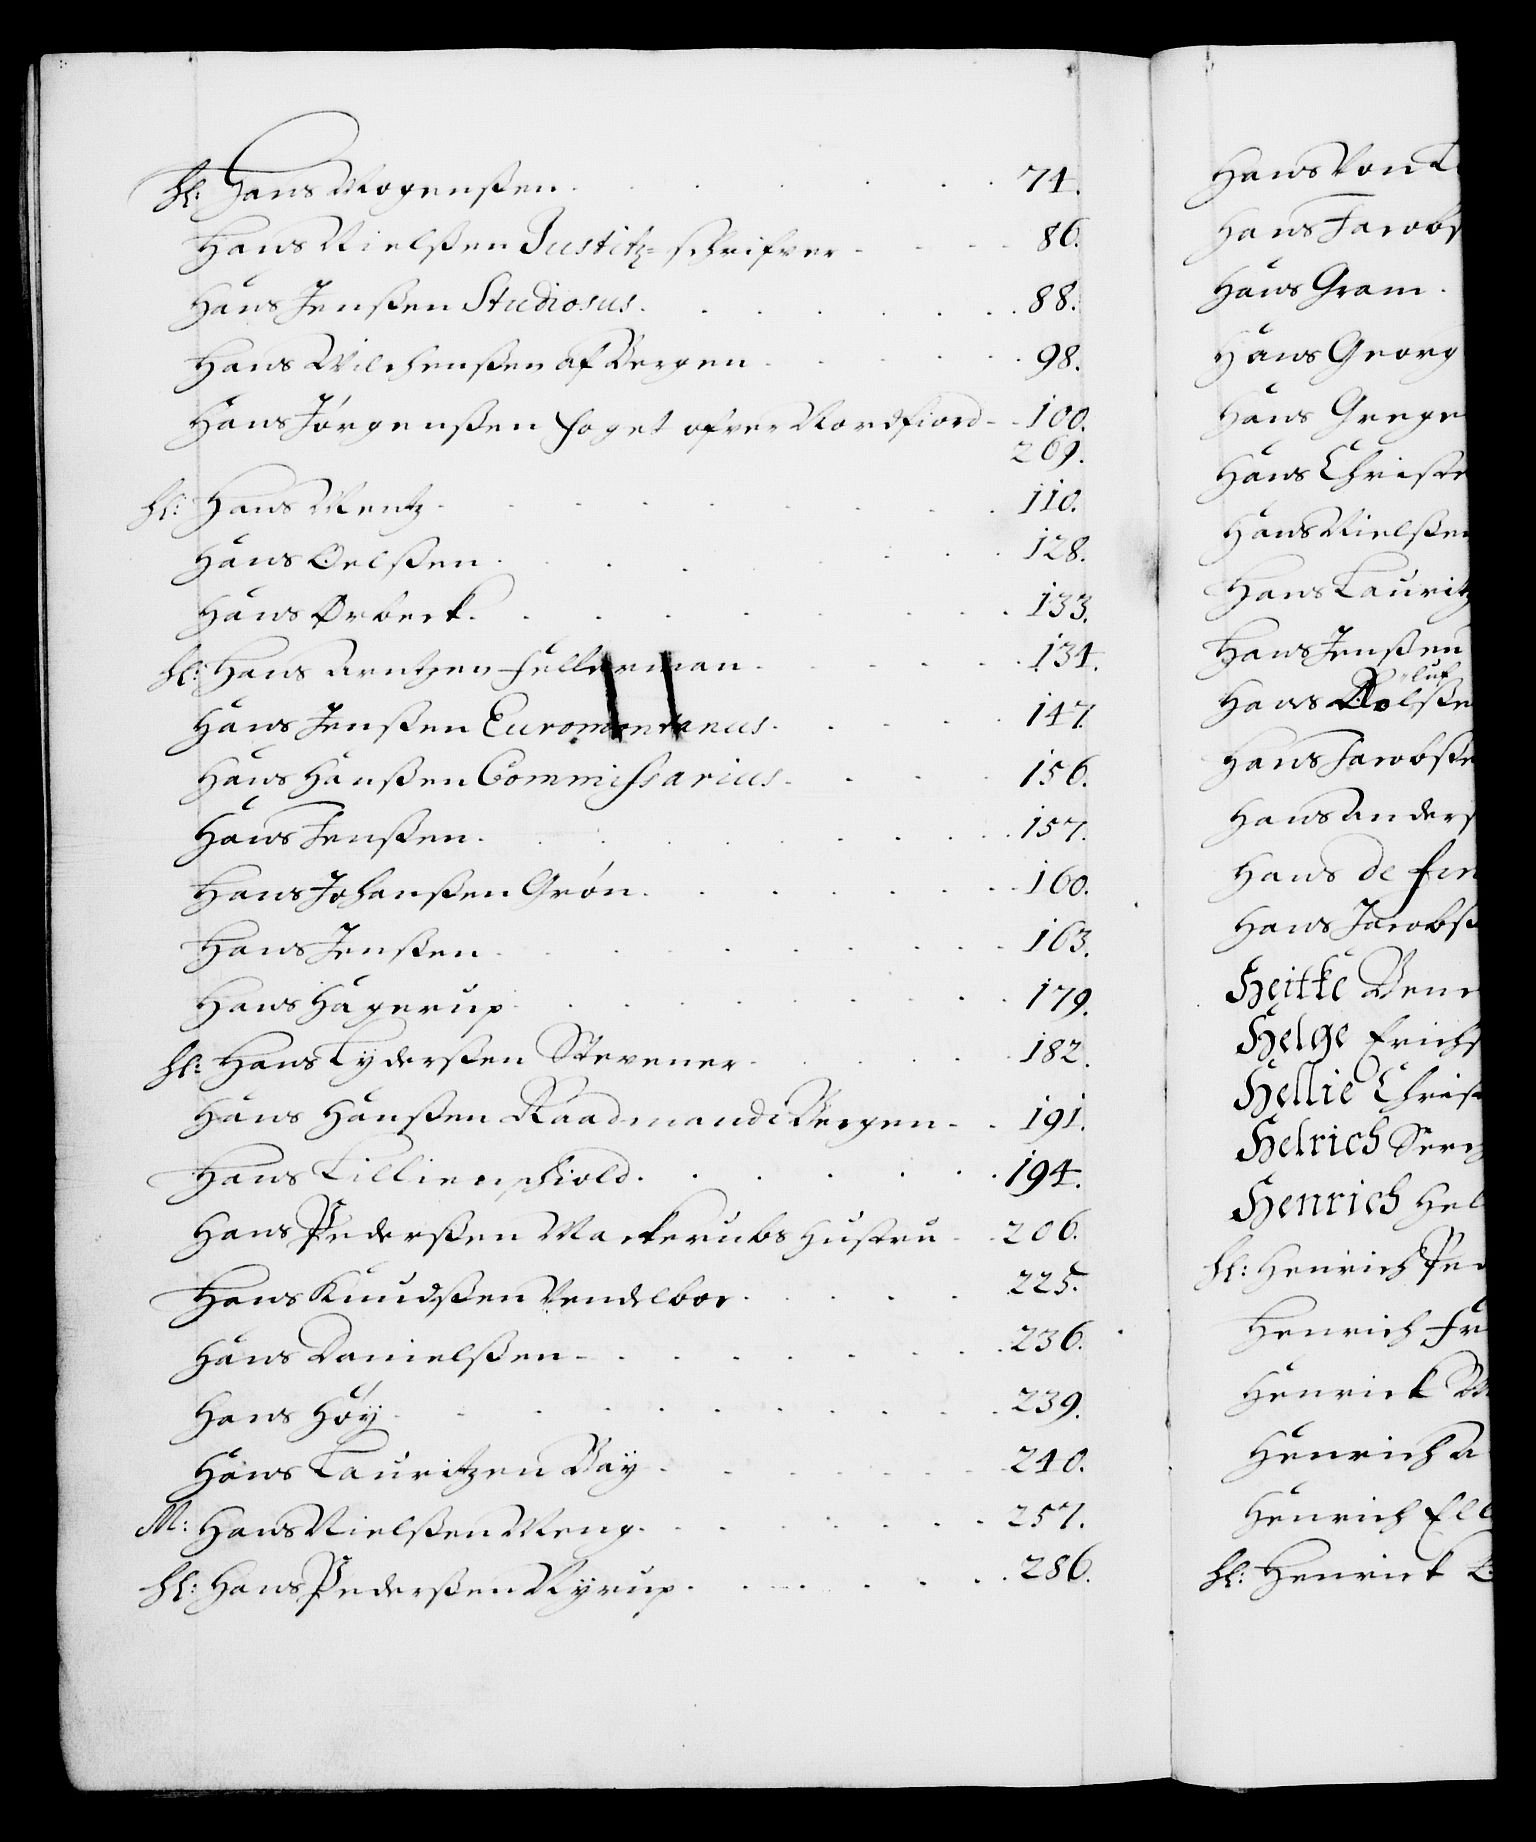 Hl: Hans Mogenßen . . . . . . 74.
Hans Nielßen Justitz=schrifver . . . 86.
Hans Jenßen Studiosus . . . . . . 88.
Hans Wilchenßen af Bergen . . . . . 98.
Hans Jørgenßen foget ofver Nordfiord . . 100.
269.
Hl: Hans Mentz . . . . . . . . 110.
Hans Oelßen . . . . . . . 128.
Hans Ørbeck . . . . . . . . 133.
Hl: Hans Arntzen Fellerman . . . . . 134.
Hans Jenßen Euromontanus . . . . . 147.
Hans Hanßen Commissarius . . . . 156.
Hans Jenßen . . . . . . . . 157.
Hans Johanßen Grøn . . . . . . 160.
Hans Jenßen . . . . . . . . 163.
Hans Hagerup . . . . . . . . 179.
Hl: Hans Lyderßen Stevener . . . . . 182.
Hans Hanßen Raadmand i Bergen . . 191.
Hans Lillienschiold . . . . . . 194.
Hans Pederßen Mackerubs Hustru . . 206.
Hans Knudßen Vendelboe . . . . . 225.
Hans Danielßen . . . . . . . 236.
Hans Høy . . . . . . . . . 239.
Hans Lauritzen Bay . . . . . . 240.
M: Hans Nielßen Meng . . . . . . 257.
Hl: Hans Pederßen Ryrup . . . . . . 286.
Hans Von
Hans Jacobs
Hans Gram .
Hans Georg
Hans Grege
Hans Christe
Hans Nielßen
Hans Lauritz
Hans Jenßen
Hans
Hans Jacobße
Hans Anders
Hans de fin
Hans Jacobß
Heitke Ben
Helge Erichs
Hellie Christ
Helrich Ser
Henrich Hel
Hl: Henrich Ped
Henrich Fr
Henrick
Henrich A
Henrich Ell
Hl: Henrick